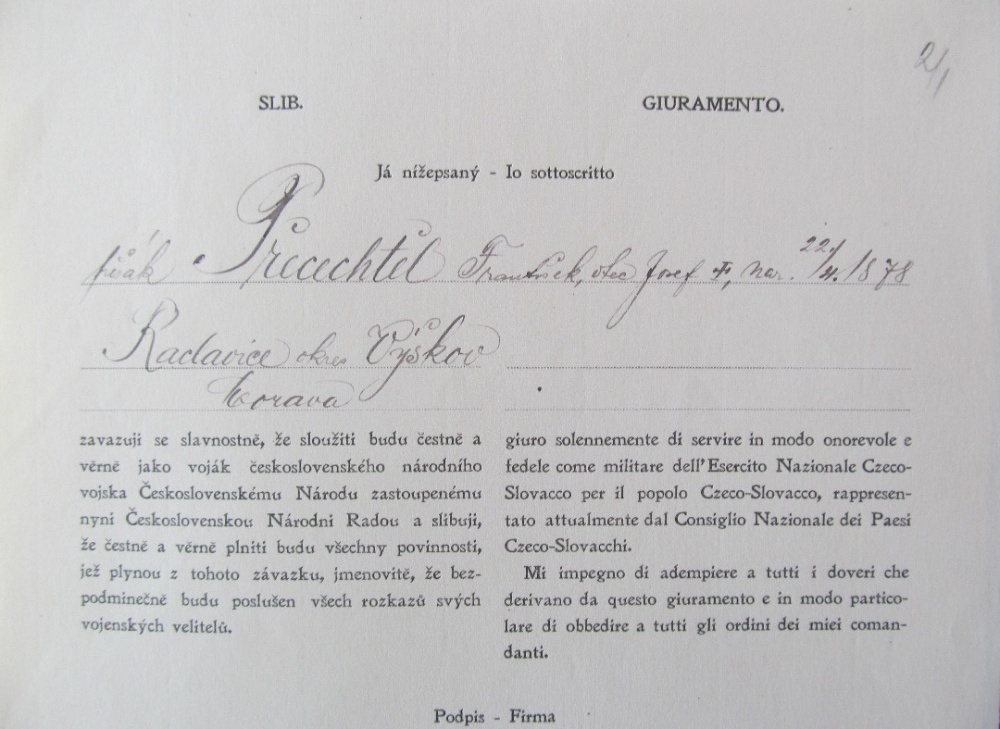 2/1
SLIB.
GIURAMENTO.
Já nížepsaný - Io sottoscritto
Přecechtěl František, otec Josef †, nar. 22/4. 1878
Radavice okres Výškov
Morava
zavazuji se slavnostně, že sloužiti budu čestně a
věrně jako voják československého národního
vojska Československému Národu zastoupenému
nyní Československou Národní Radou a slibuji,
že čestně a věrně plniti budu všechny povinnosti,
jež plynou z tohoto závazku, jmenovitě, že bez-
podminečně budu poslušen všech rozkazů svých
vojenských velitelů.
giuro solennemente di servire in modo onorevole e
fedele come militare dell'Esercito Nazionale Czeco-
Slovacco per il popolo Czeco-Slovacco, rappresen-
tato attualmente dal Consiglio Nazionale dei Paesi
Czeco-Slovacchi.
Mi impegno di adempiere a tutti i doveri che
derivano da questo giuramento e in modo partico-
lare di obbedire a tutti gli ordini dei miei coman-
danti.
Podpis - Firma